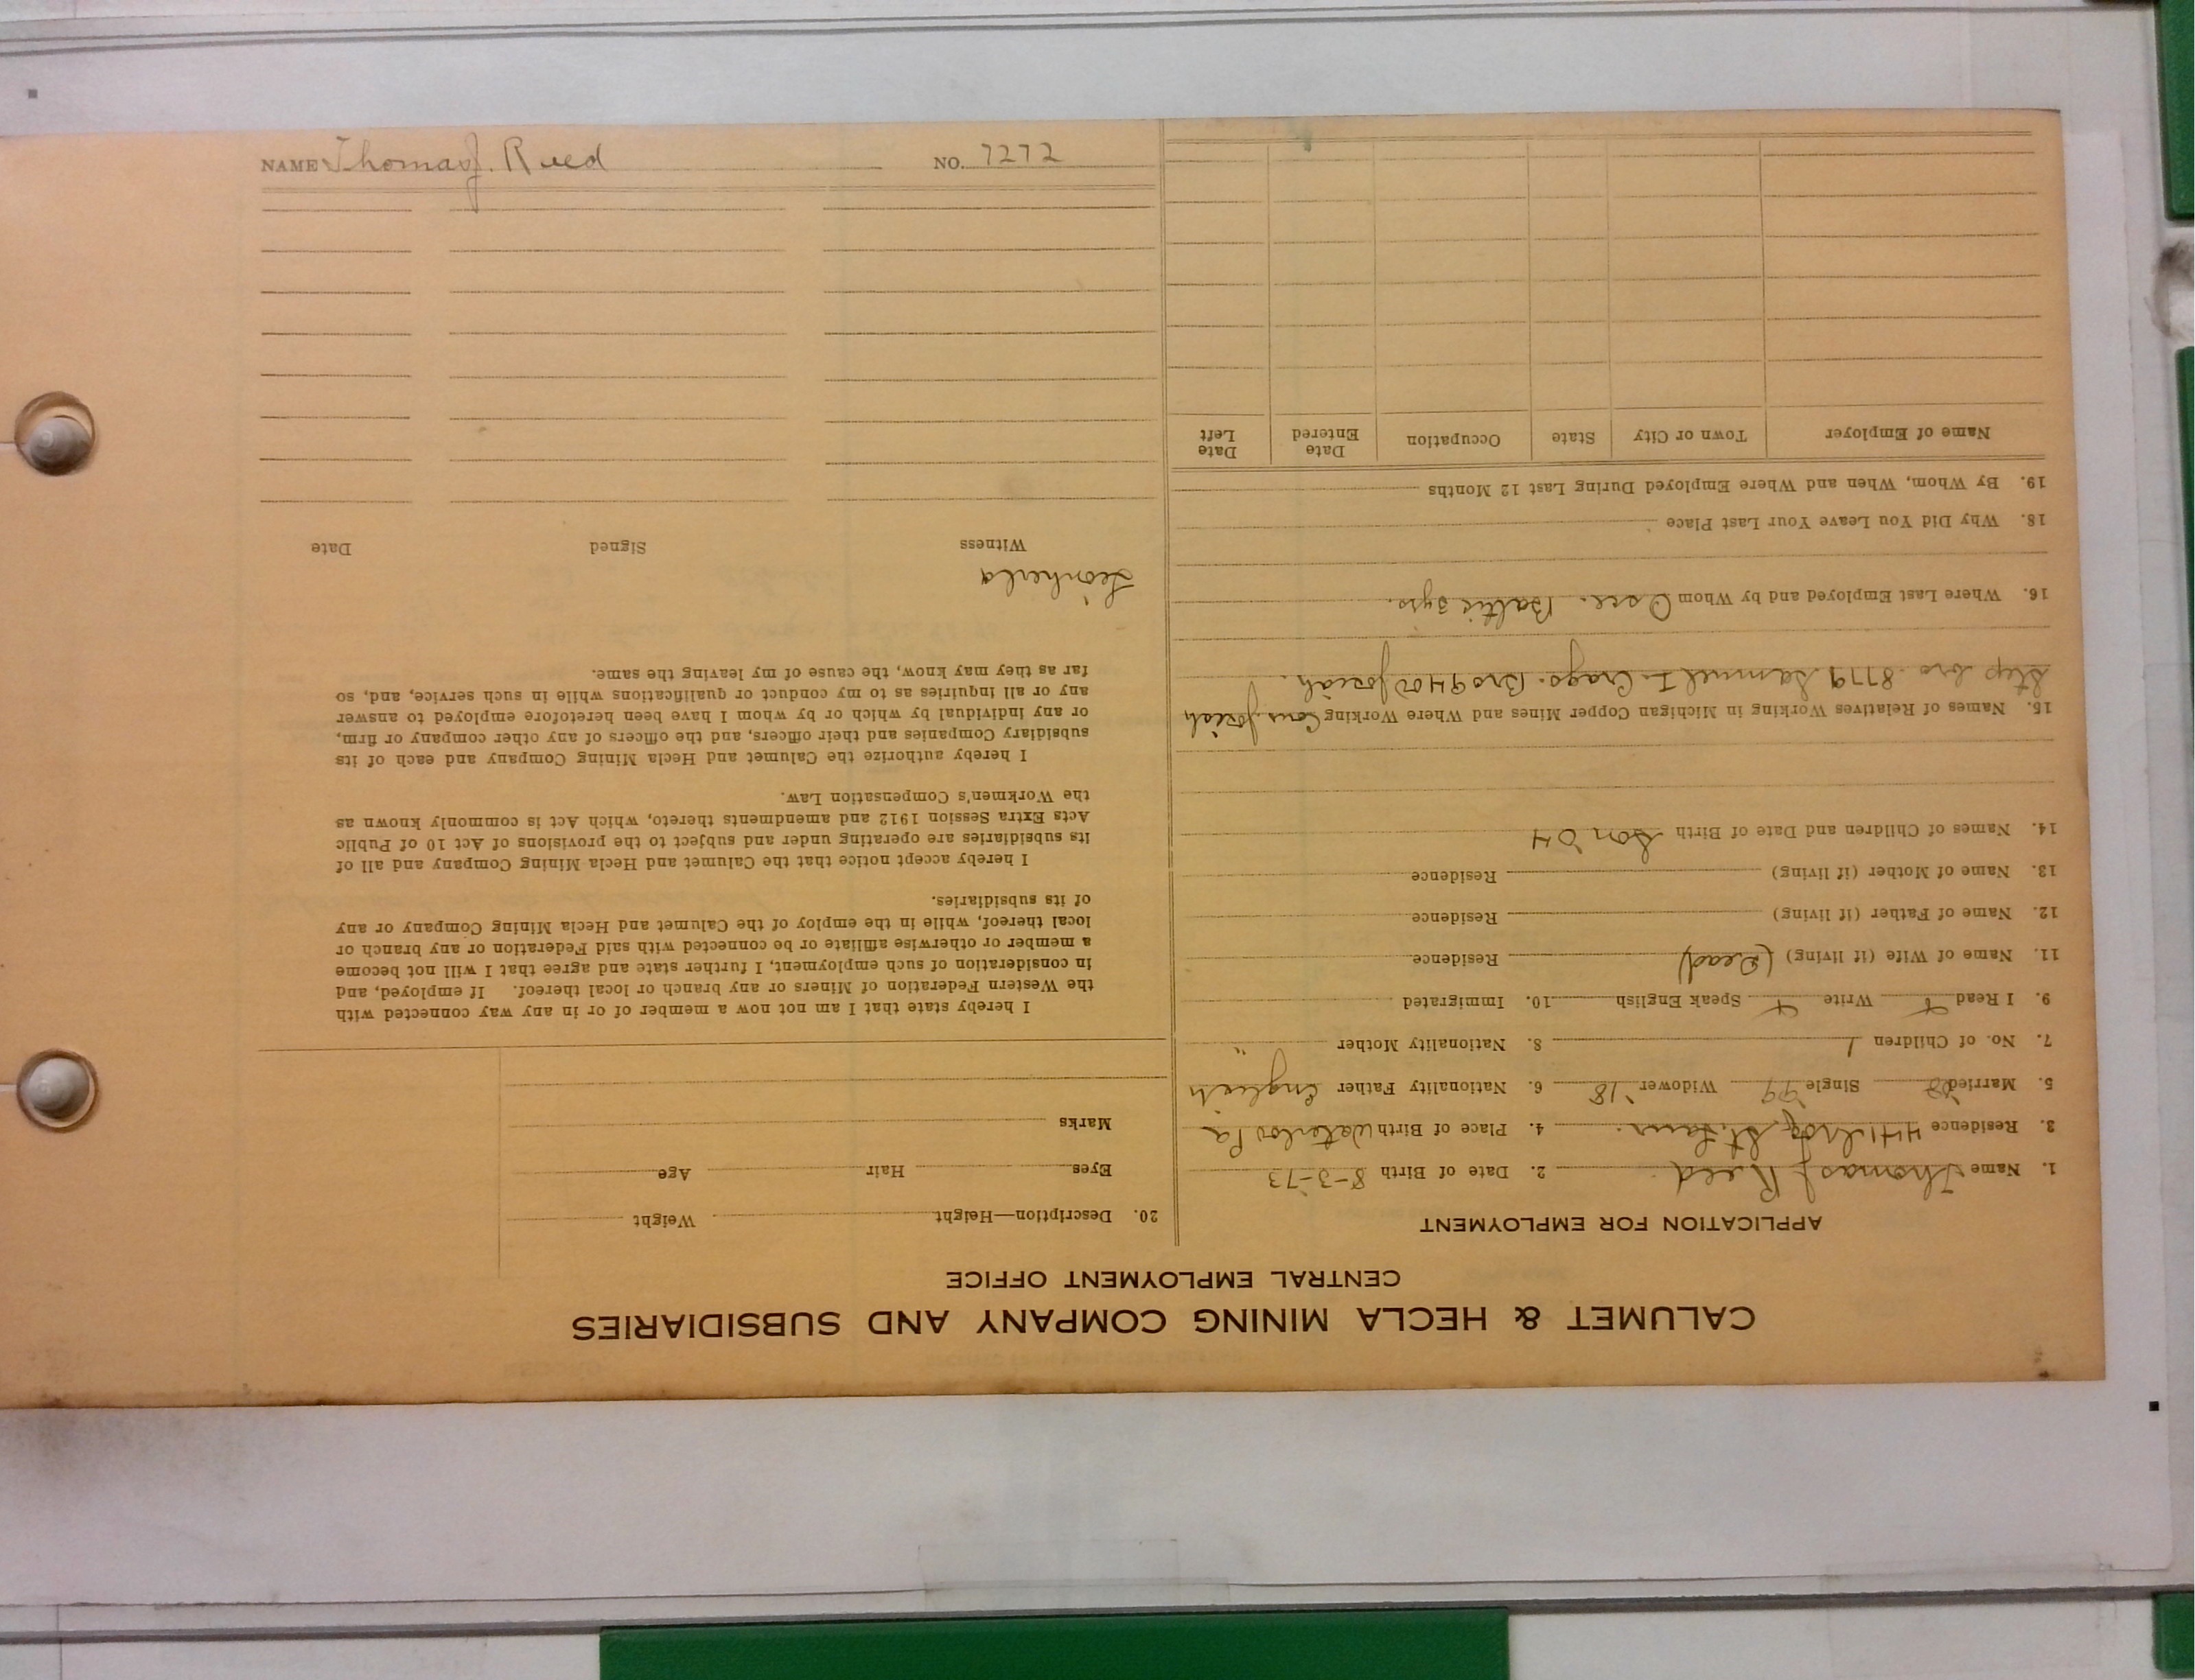 NAME Thomas J. Reed NO. 7272
CALUMET & HECLA MINING COMPANY AND SUBSIDIARIES
CENTRAL EMPLOYMENT OFFICE
APPLICATION FOR EMPLOYMENT
1. Name Thomas J Reed 2. Date of Birth 8-3-73
3. Residence 4. Place of Birth Waterloo Pa
5. Married Single Widower '18 6. Nationality Father English
7. No. of Children 1 8. Nationality Mother "
9. I Read Write Speak English 10. Immigrated
11. Name of Wife (if living) (Dead) Residence
12. Name of Father (if living) Residence
13. Name of Mother (if living) Residence
14. Names of Children and Date of Birth Son '04
15. Names of Relatives Working in Michigan Copper Mines and Where Working Cous. Josiah
Step bro. 8779 Samuel I. Crago. Bro 9400 Josiah.
16. Where Last Employed and by Whom Osce. Baltic 3yrs.
18. Why Did You Leave Your Last Place
19. By Whom, When and Where Employed During Last 12 Months
Name of Employer Town or City State Occupation Date Entered Date Left
20. Description—Height Weight
Eyes Hair Age
Marks
I hereby state that I am not now a member of or in any way connected with
the Western Federation of Miners or any branch or local thereof. If employed, and
in consideration of such employment, I further state and agree that I will not become
a member or otherwise affiliate or be connected with said Federation or any branch or
local thereof, while in the employ of the Calumet and Hecla Mining Company or any
of its subsidiaries.
I hereby accept notice that the Calumet and Hecla Mining Company and all of
its subsidiaries are operating under and subject to the provisions of Act 10 of Public
Acts Extra Session 1912 and amendments thereto, which Act is commonly known as
the Workmen's Compensation Law.
I hereby authorize the Calumet and Hecla Mining Company and each of its
subsidiary Companies and their officers, and the officers of any other company or firm,
or any individual by which or by whom I have been heretofore employed to answer
any or all inquiries as to my conduct or qualifications while in such service, and, so
far as they may know, the cause of my leaving the same.
Witness Signed Date